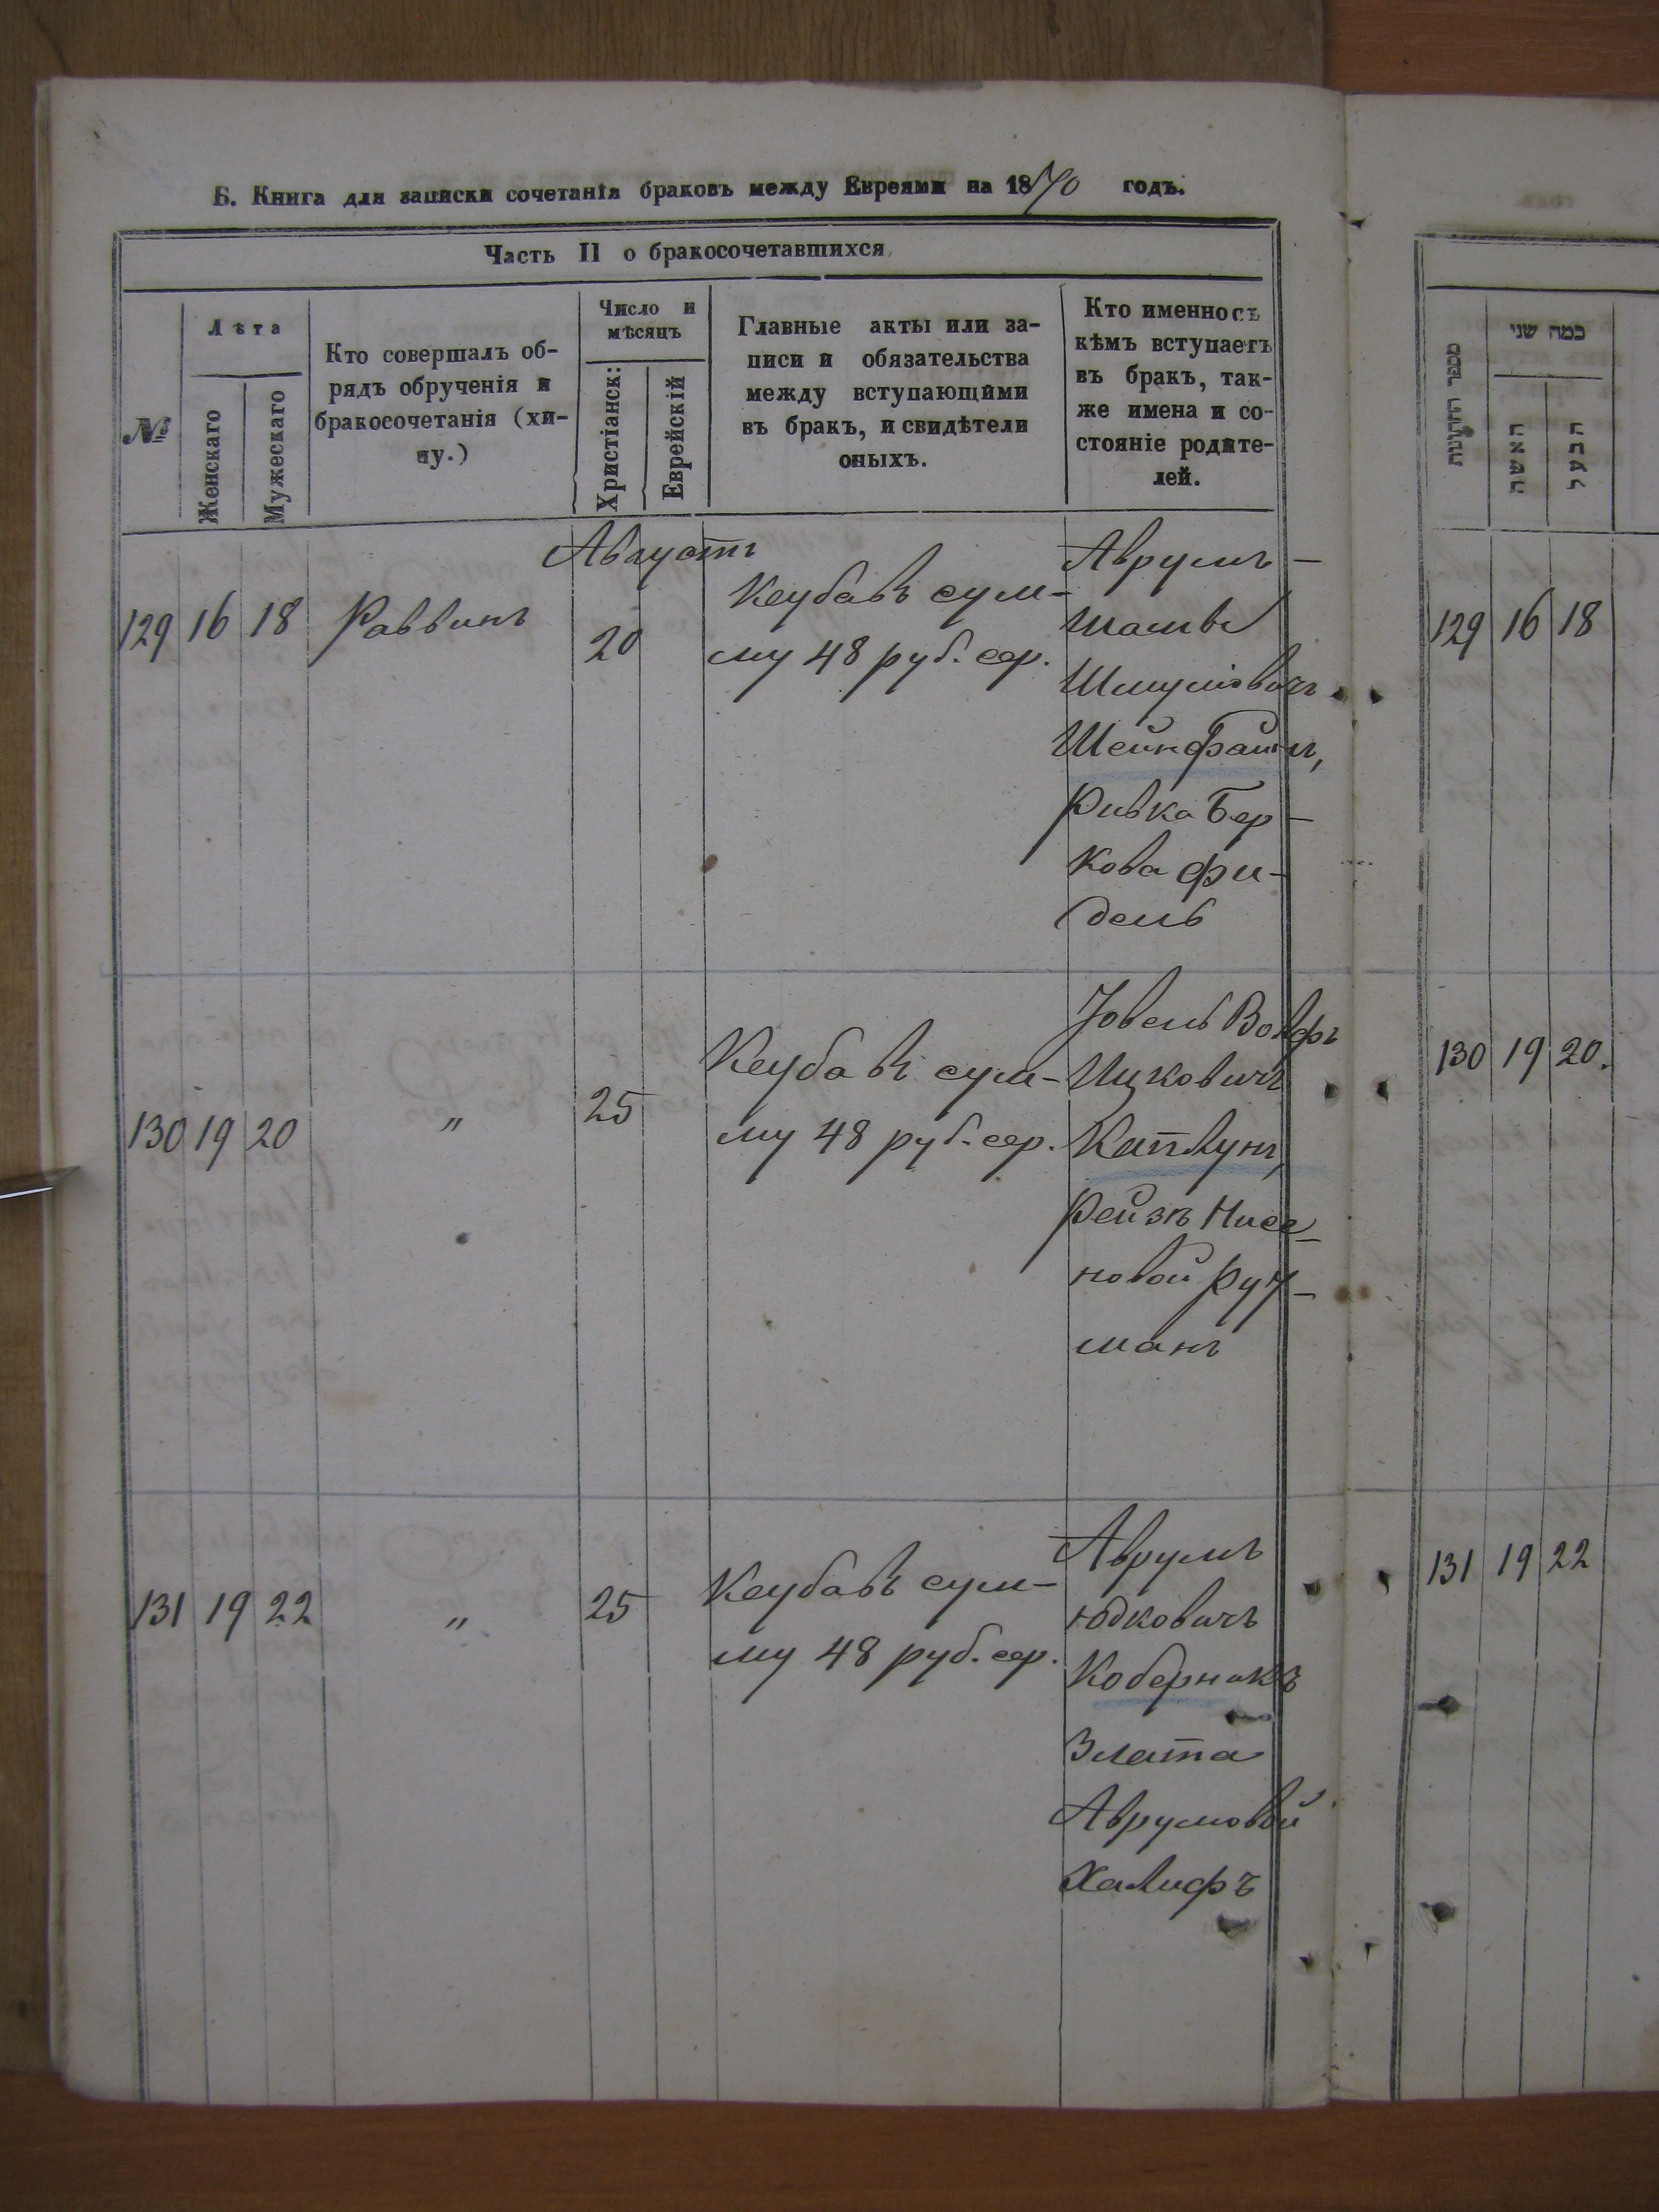 Б. Книга для записки сочетанія браковъ между Евреями на 1870 годъ.
Часть II о бракосочетавшихся
№
Лѣта
Женскаго
Мужескаго
Кто совершалъ об-
рядъ обрученія и
бракосочетанія (хи-
пу.)
Число и
мѣсяцъ
Христіанск:
Еврейскій
Главные акты или за-
писи и обязательства
между вступающими
въ бракъ, и свидѣтели
оныхъ.
Кто именно съ
кѣмъ вступаетъ
въ бракъ, так-
же имена и со-
стояніе родите-
лей.
Августъ
129 16 18 Раввинъ 20
Кеубавъ сум-
му 48 руб. сер.
Аврумъ-
Шмулiовичъ
Шейнфайнъ,
Ривка Бер-
кова Фи-
дель
130 19 20 " 25
Кеубавъ сум-
му 48 руб. сер.
Іовель Вольфъ
Ицковичъ
Каплунъ,
Рейзѣ Нисе-
новой
манъ
131 19 22 " 25
Кеубавъ сум-
му 48 руб. сер.
Аврумъ
Юдковичъ
Коберникъ
Злата
Аврумовой
Халифъ
כמה שני
האשה
הבעל
129 16 18
130 19 20.
131 19 22